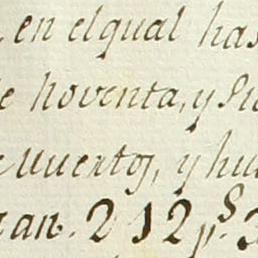 en el qual has
hoventa, y
Muertos, y hu
an. 212 p.s 3